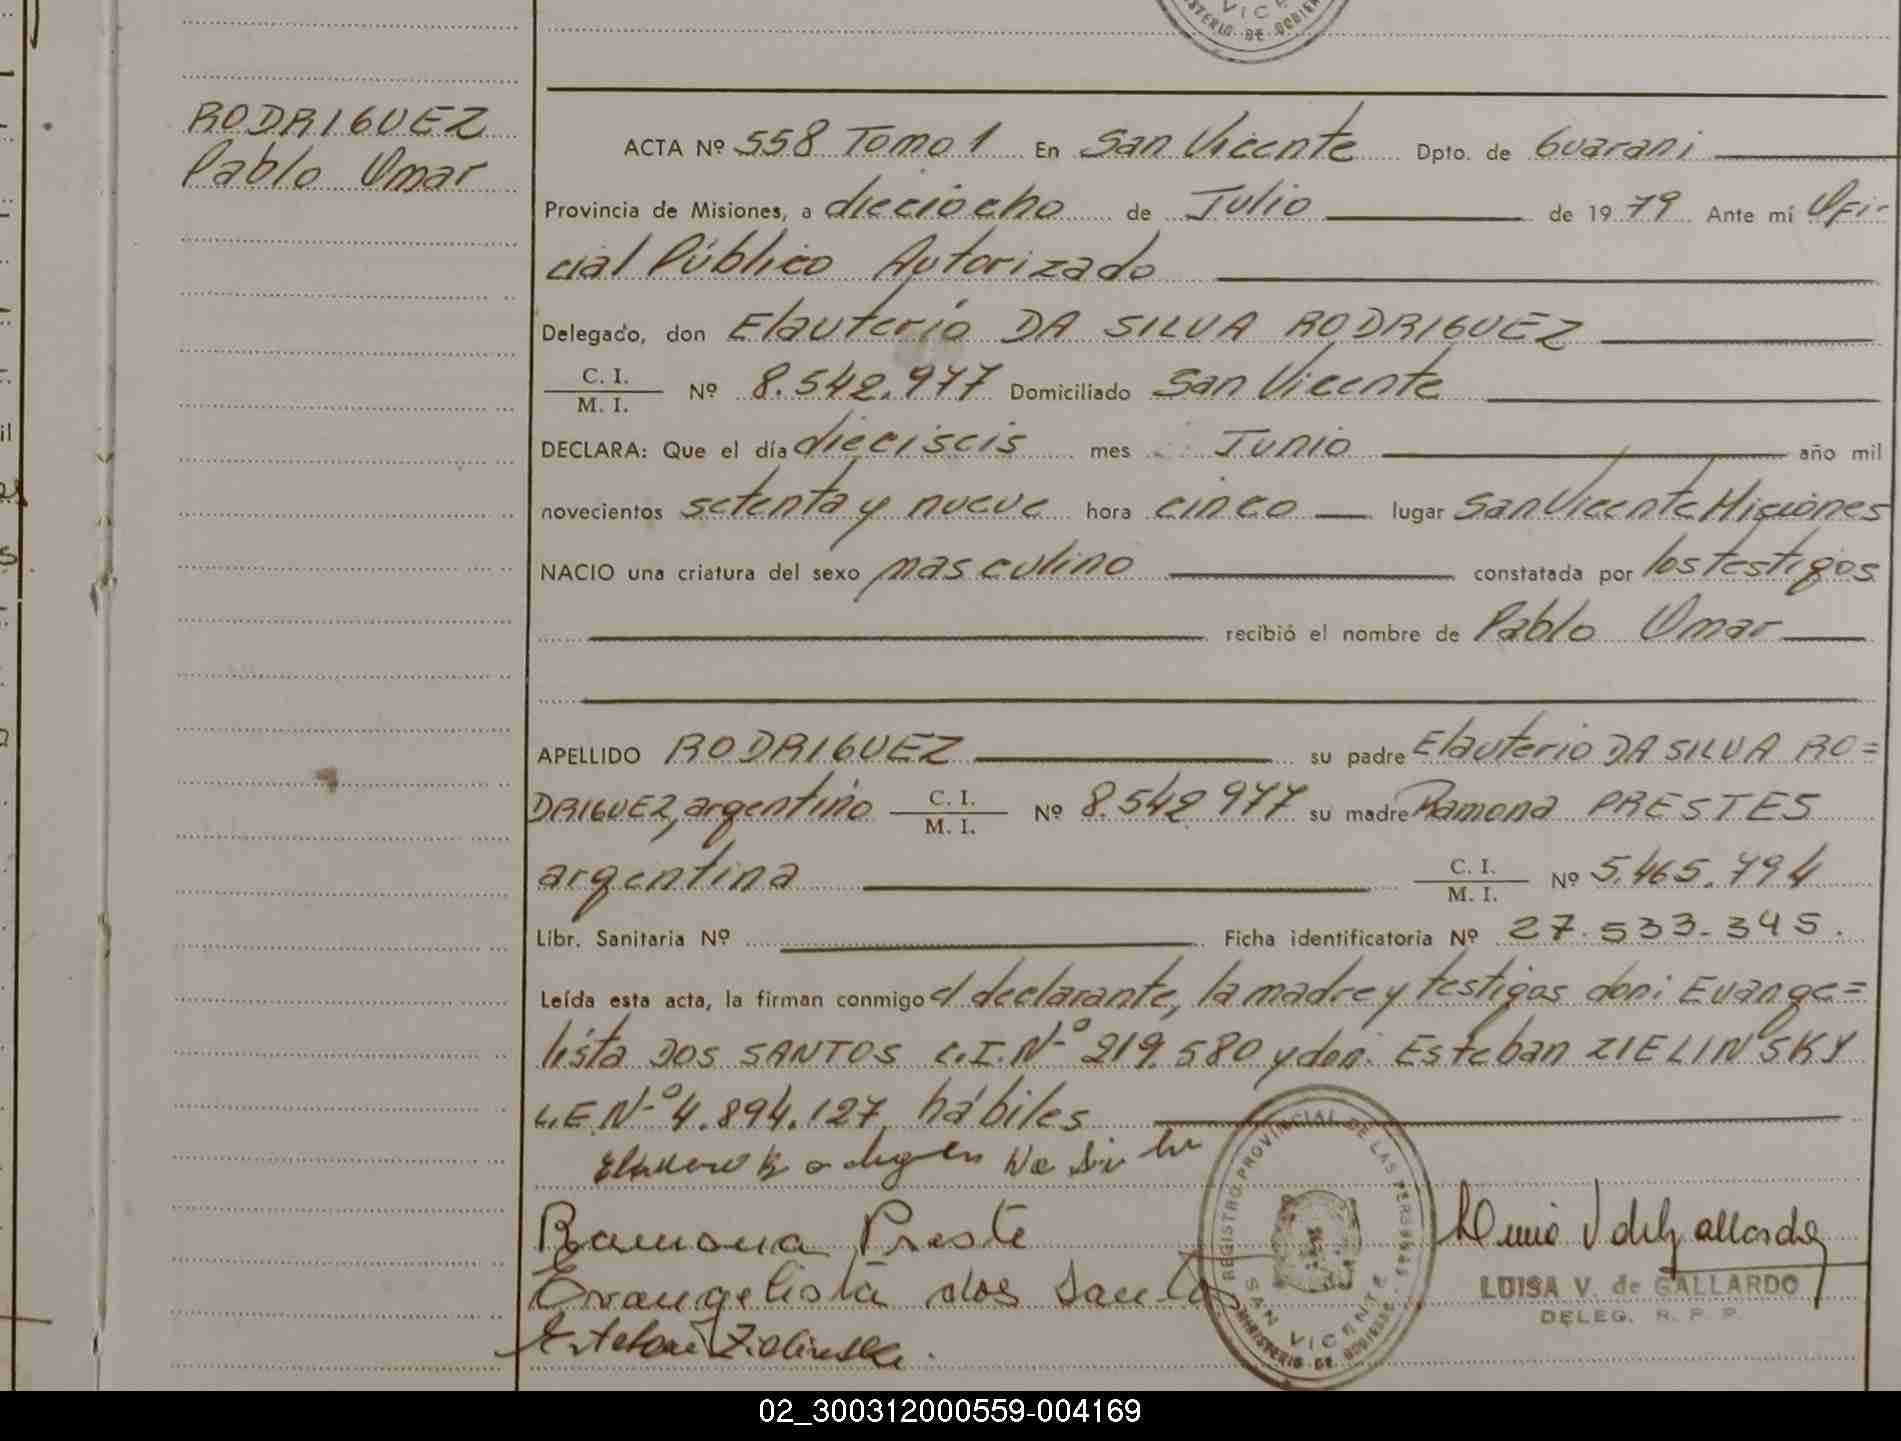 VICE
MINISTERIO DE GOBIERNO
RODRIGUEZ
Pablo Omar
ACTA Nº 558 Tomo 1 En San Vicente Dpto. de Guarani
Provincia de Misiones, a dieciocho de Julio de 19 79 Ante mí Ofi-
cial Público Autorizado
Delegado, don Elauterio DA SILVA RODRIGUEZ
C. I.
M. I. Nº 8.542.977 Domiciliado San Vicente
DECLARA: Que el día dieciseis mes Junio año mil
novecientos setenta y nueve hora cinco lugar San Vicente Misiones
NACIO una criatura del sexo masculino constatada por los testigos
recibió el nombre de Pablo Omar
APELLIDO RODRIGUEZ su padre Elauterio DA SILVA RO=
DRIGUEZ, argentino C. I. M. I. Nº 8.542.977 su madre Ramona PRESTES
argentina C. I. M. I. Nº 5.465.794
Libr. Sanitaria Nº Ficha identificatoria Nº 27.533.345.
Leída esta acta, la firman conmigo el declarante, la madre y testigos don: Evange=
lista DOS SANTOS C.I. Nº 219.580 y don: Esteban ZIELINSKY
L.E. Nº 4.894.127, hábiles
Ramona Preste
Evangelista dos Santos
Esteban Zielinski.
REGISTRO PROVINCIAL DE LAS PERSONAS
SAN VICENTE
MINISTERIO DE GOBIERNO
LUISA V. de GALLARDO
DELEG. R. P. P.
02_300312000559-004169